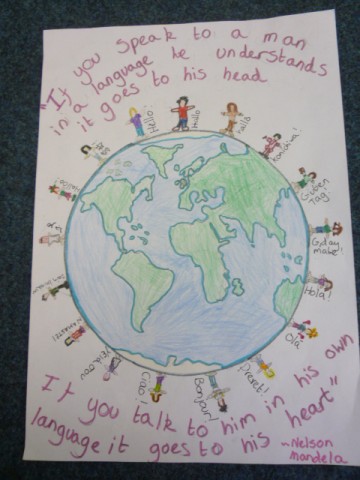 "If you speak to a man
in a language he understands
it goes to his head
Hello!
Hallo
Hallo
Konichiwa!
Guten
Tag!
G'day
mate!
Hola!
Olá
Privet!
Bonjour!
Ciao!
NAMASTE!
If you talk to him in his own
language it goes to his heart"
~Nelson
Mandela